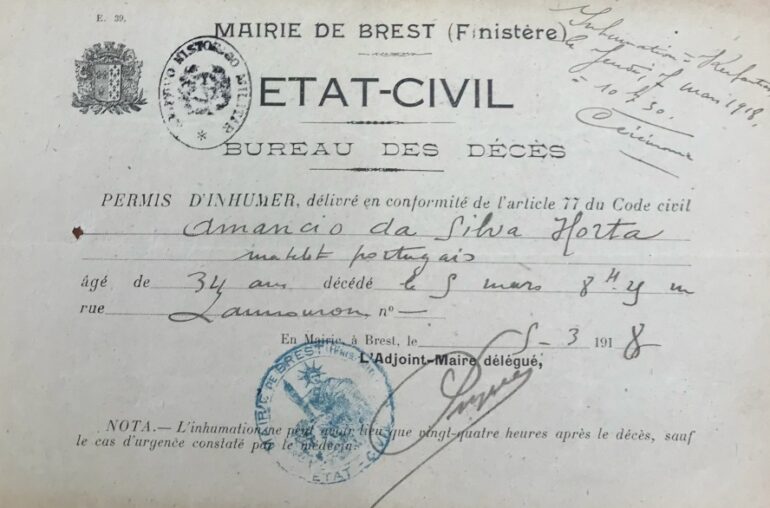 E. 39.
MAIRIE DE BREST (Finistère)
Inhumation =
le Jeudi 7 mars 1918,
= 10 h 30.
Cérémonie
ARCHIVO HISTORICO MILITAR
*
ETAT-CIVIL
BUREAU DES DÉCÈS
PERMIS D'INHUMER, délivré en conformité de l'article 77 du Code civil
Amancio da Silva Horta
matelot portugais
âgé de 34 ans décédé le 5 mars 8 H
rue n° —
En Mairie, à Brest, le 5-3 1918
L'Adjoint-Maire délégué,
MAIRIE DE BREST (Finistère)
ETAT-
NOTA. — L'inhumation ne peut avoir lieu que vingt-quatre heures après le décès, sauf
le cas d'urgence constaté par le médecin.